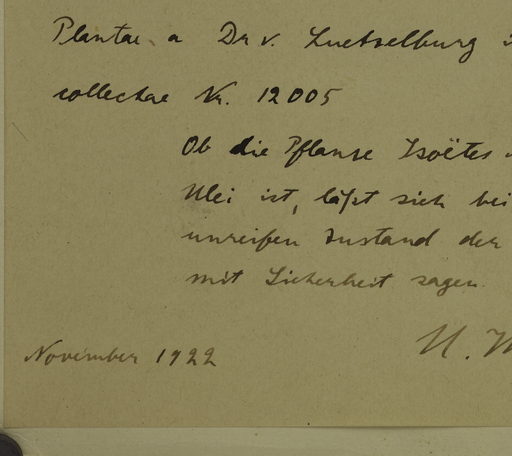 Plantae a Dr v. Luetzelburg
collectae Nr. 12005
Ob die Pflanze Isoëtes
Ulei ist, läßt sich bei
unreifen Zustand der
mit Sicherheit sagen.
November 1922
U. W